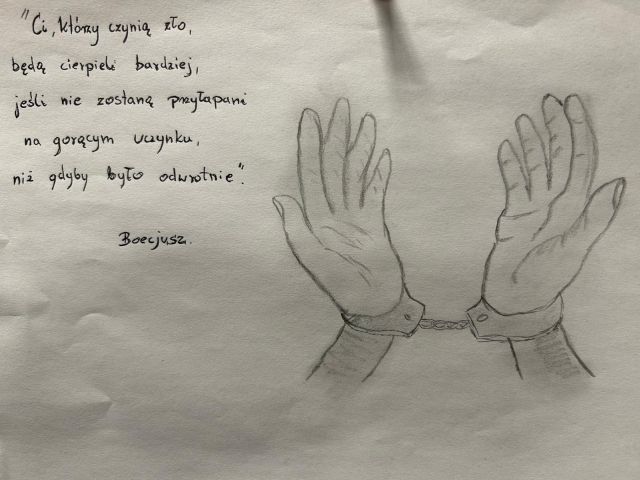 "Ci, którzy czynią zło,
będą cierpieli bardziej,
jeśli nie zostaną przyłapani
na gorącym uczynku,
niż gdyby było odwrotnie".
Boecjusz.